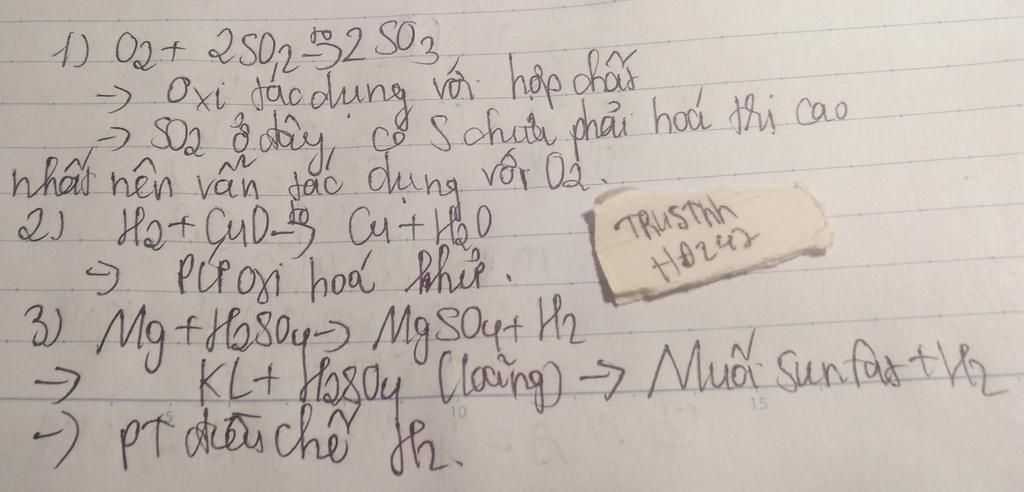 1) O2 + 2SO2 -to-> 2SO3
-> Oxi tác dụng với hợp chất
-> SO2 ở đây, có S chưa phải hoá trị cao
nhất nên vẫn tác dụng với O2.
2) H2 + CuO -to-> Cu + H2O
TRUSTNh
HĐ247
-> PƯ oxi hoá khử.
3) Mg + H2SO4 -> MgSO4 + H2
-> KL + H2SO4 (loãng) -> Muối sunfat + H2
10 15
-> PT điều chế H2.